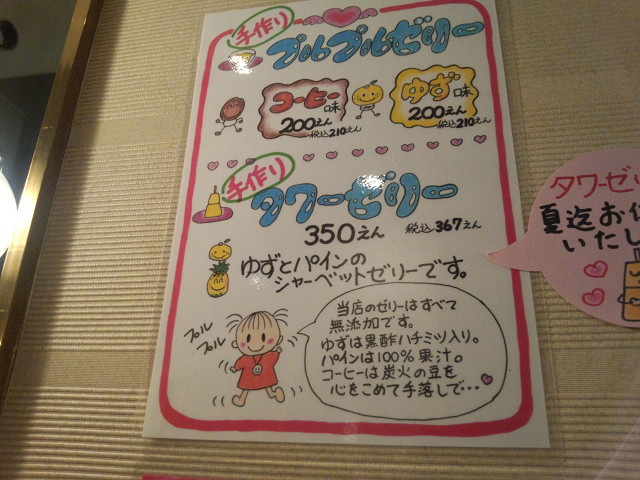 手作り
プルプルゼリー
コーヒー味
200えん
税込210えん
ゆず味
200えん
税込210えん
手作り
タワーゼリー
350えん 税込367えん
ゆずとパインの
シャーベットゼリーです。
プル
プル
当店のゼリーはすべて
無添加です。
ゆずは黒酢ハチミツ入り。
パインは100%果汁。
コーヒーは炭火の豆を
心をこめて手落しで…
タワーゼリ
夏迄お
いたし